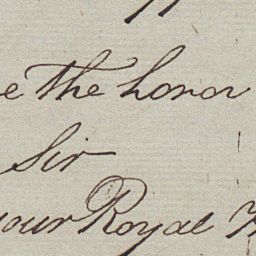 e the honor
Sir
your Royal H